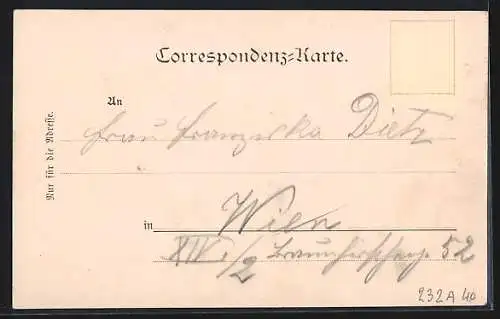 Correspondenz-Karte.
An
Frau Franziska Dietz
Nur für die Adresse.
in Wien
XIV/2 Braunhirscheng. 52
232A40